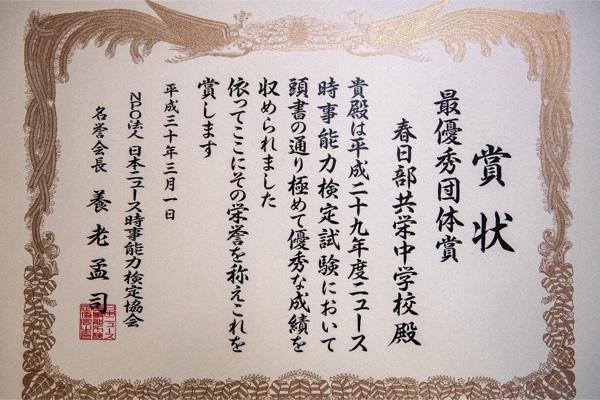 賞状
最優秀団体賞
春日部共栄中学校殿
貴殿は平成二十九年度ニュース
時事能力検定試験において
頭書の通り極めて優秀な成績を
収められました
依ってここにその栄誉を称えこれを
賞します
平成三十年三月一日
NPO法人 日本ニュース時事能力検定協会
名誉会長 養老孟司